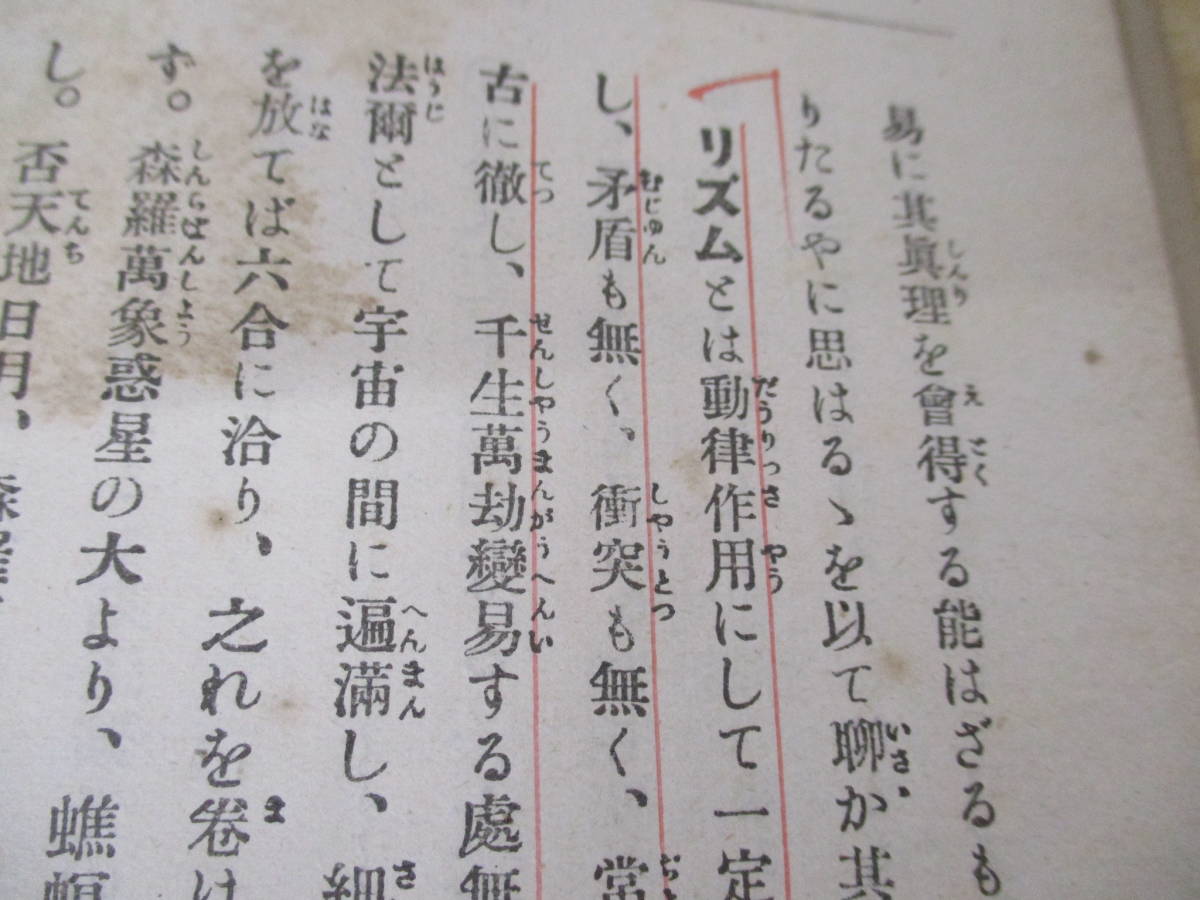 易に其眞理を會得する能はざるも
りたるやに思はるゝを以て聊か其
リズムとは動律作用にして一定
し、矛盾も無く、衝突も無く、常
古に徹し、千生萬劫變易する處無
法爾として宇宙の間に遍滿し、細
を放てば六合に洽り、之れを卷は
ず。森羅萬象惑星の大より、蟭螟
し。否天地日月、森羅